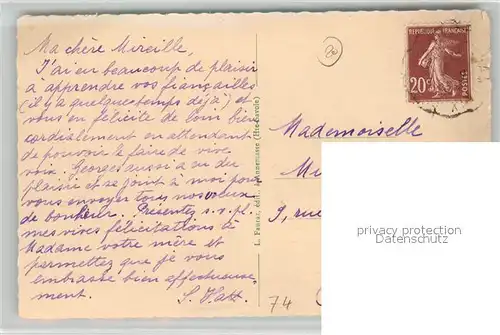 Ma chère Mireille,
J'ai eu beaucoup de plaisir
a apprendre vos fiançailles
(il y a quelque temps déjà) et
vous en félicite de loin bien
cordialement en attendant
de pouvoir le faire de vive
voix. Georges aussi a eu du
plaisir et se joint à moi pour
vous envoyer tous nos vœux
de bonheur. Présentez s.v.pl.
mes vives félicitations à
Madame votre mère et
permettez que je vous
embrasse bien affectueuse
ment.
S. Hatt
L. Fauraz, édit., Annemasse (Hte-Savoie)
REPUBLIQUE FRANÇAISE
20c
POSTES
Mademoiselle
9, rue
74
protection
Datenschutz